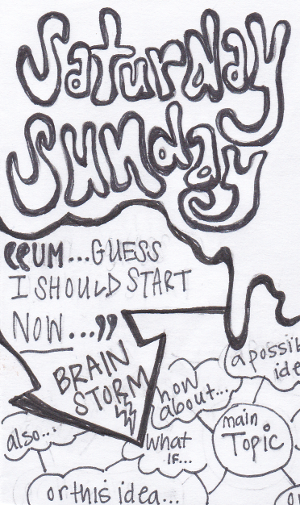 Saturday
Sunday
"UM...GUESS
I SHOULD START
NOW..."
BRAIN
STORM
a possib
ide
how
about...
main
TOPIC
also...
what
IF...
or this idea...
or